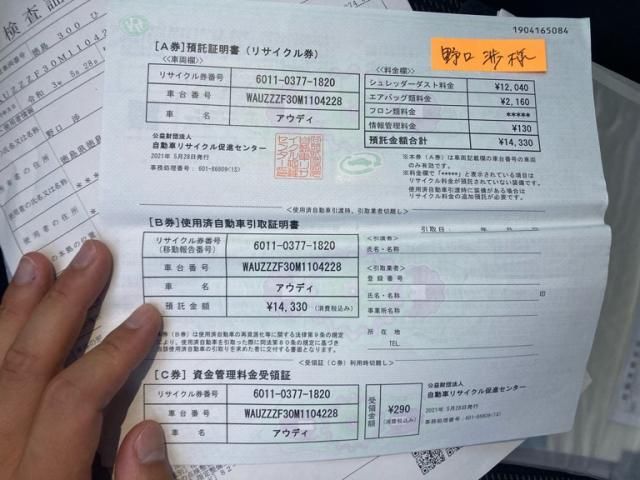 1904165084
[A券]預託証明書(リサイクル券)
野口 渉 様
<<車両欄>>
リサイクル券番号 6011-0377-1820
車台番号 WAUZZZF30M1104228
車名 アウディ
<<料金欄>>
シュレッダーダスト料金 ¥12,040
エアバッグ類料金 ¥2,160
フロン類料金 *****
情報管理料金 ¥130
預託金額合計 ¥14,330
公益財団法人
自動車リサイクル促進センター
2021年 5月28日発行
事務処理番号:601-86809(1S)
※本券(A券)は車両記載欄の車台番号の車両
のみ有効です。
※料金欄で「*****」と表示されている項目は
リサイクル料金が預託されていない装備です。
使用済自動車引渡時に装備がある場合は
リサイクル料金の追加預託が必要です。
<使用済自動車引渡時、引取業者切離し>
[B券]使用済自動車引取証明書
引取日: 年 月 日
リサイクル券番号
(移動報告番号) 6011-0377-1820
車台番号 WAUZZZF30M1104228
車名 アウディ
預託金額 ¥14,330 (消費税込み)
<引渡者>
氏名・名称
<引取業者>
登録番号
氏名・名称 印
事業所名称
所在地
TEL.
券(B券)は使用済自動車の再資源化等に関する法律第9条の規定
により、使用済自動車を引取った際に同法第80条の規定に基づき
当該使用済自動車の引取りを求めた者に交付する書面となります。
<受領証(C券)利用時切離し>
[C券]資金管理料金受領証
リサイクル券番号 6011-0377-1820
車台番号 WAUZZZF30M1104228
車名 アウディ
受領金額 ¥290
(消費税込み)
公益財団法人
自動車リサイクル促進センター
2021年 5月28日発行
事務処理番号:601-86809(1S)
検査証
徳島 300 ひ
UZZZF30M11042
令和 3年 5月 28日
野口 渉
徳島県徳島
使用者の住所